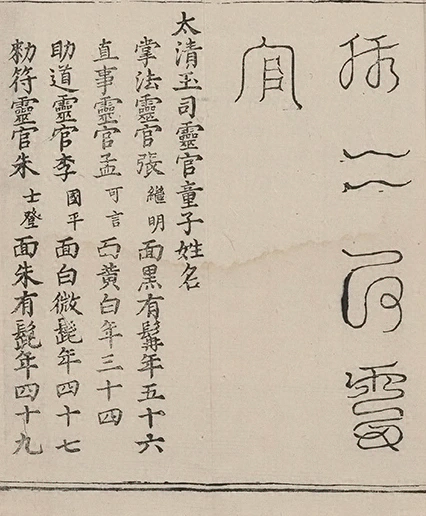 太清玉司靈官童子姓名
掌法靈官張繼明面黑有髯年五十六
直事靈官孟可言面黃白年三十四
助道靈官李國平面白微髭年四十七
勑符靈官朱士登面朱有髭年四十九